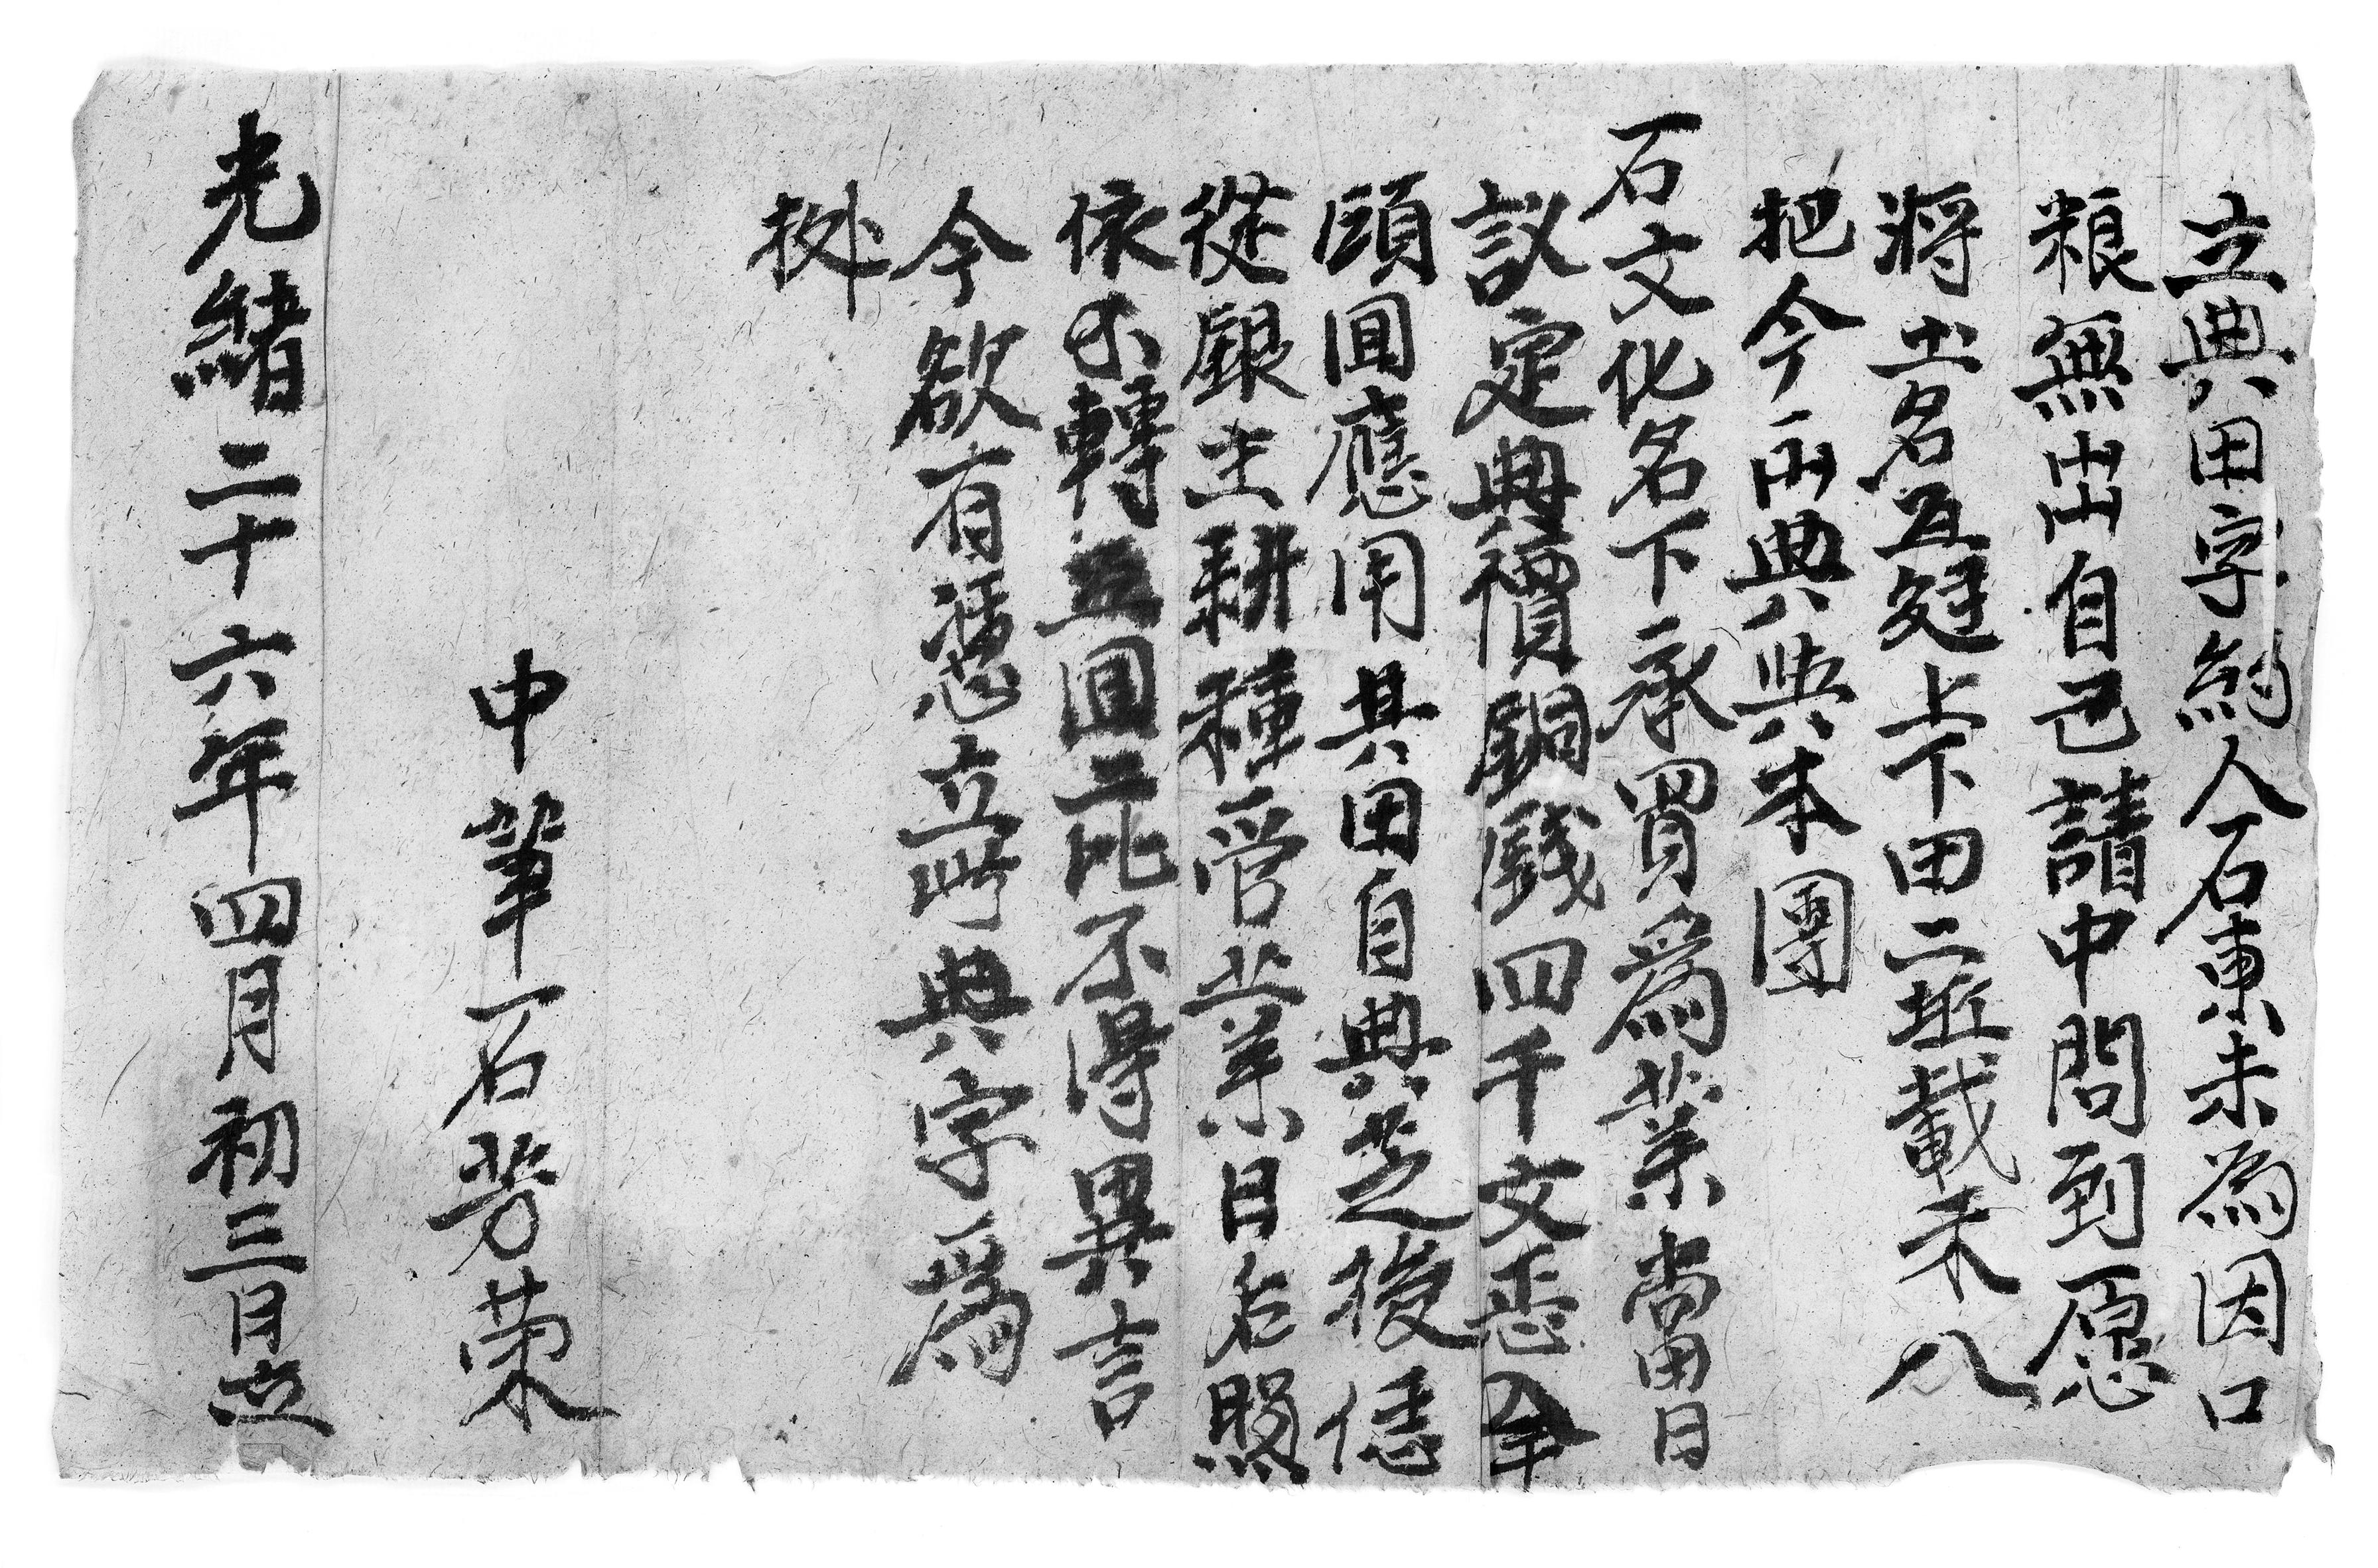 立典田字約人石東未為因口
粮無出自己請中問到愿
將土名五𨫼上下田二坵載禾八
把今出典典與本團
石文化名下承買為業當日
議定典價銅錢四千文悉全
頭囬應用其田自典芝後憑
從銀主耕種管業日后照
依不轉囬二比不得異言
今欲有憑立此典字爲
㨿
中筆石芳荣
光緒二十六年四月初三日立